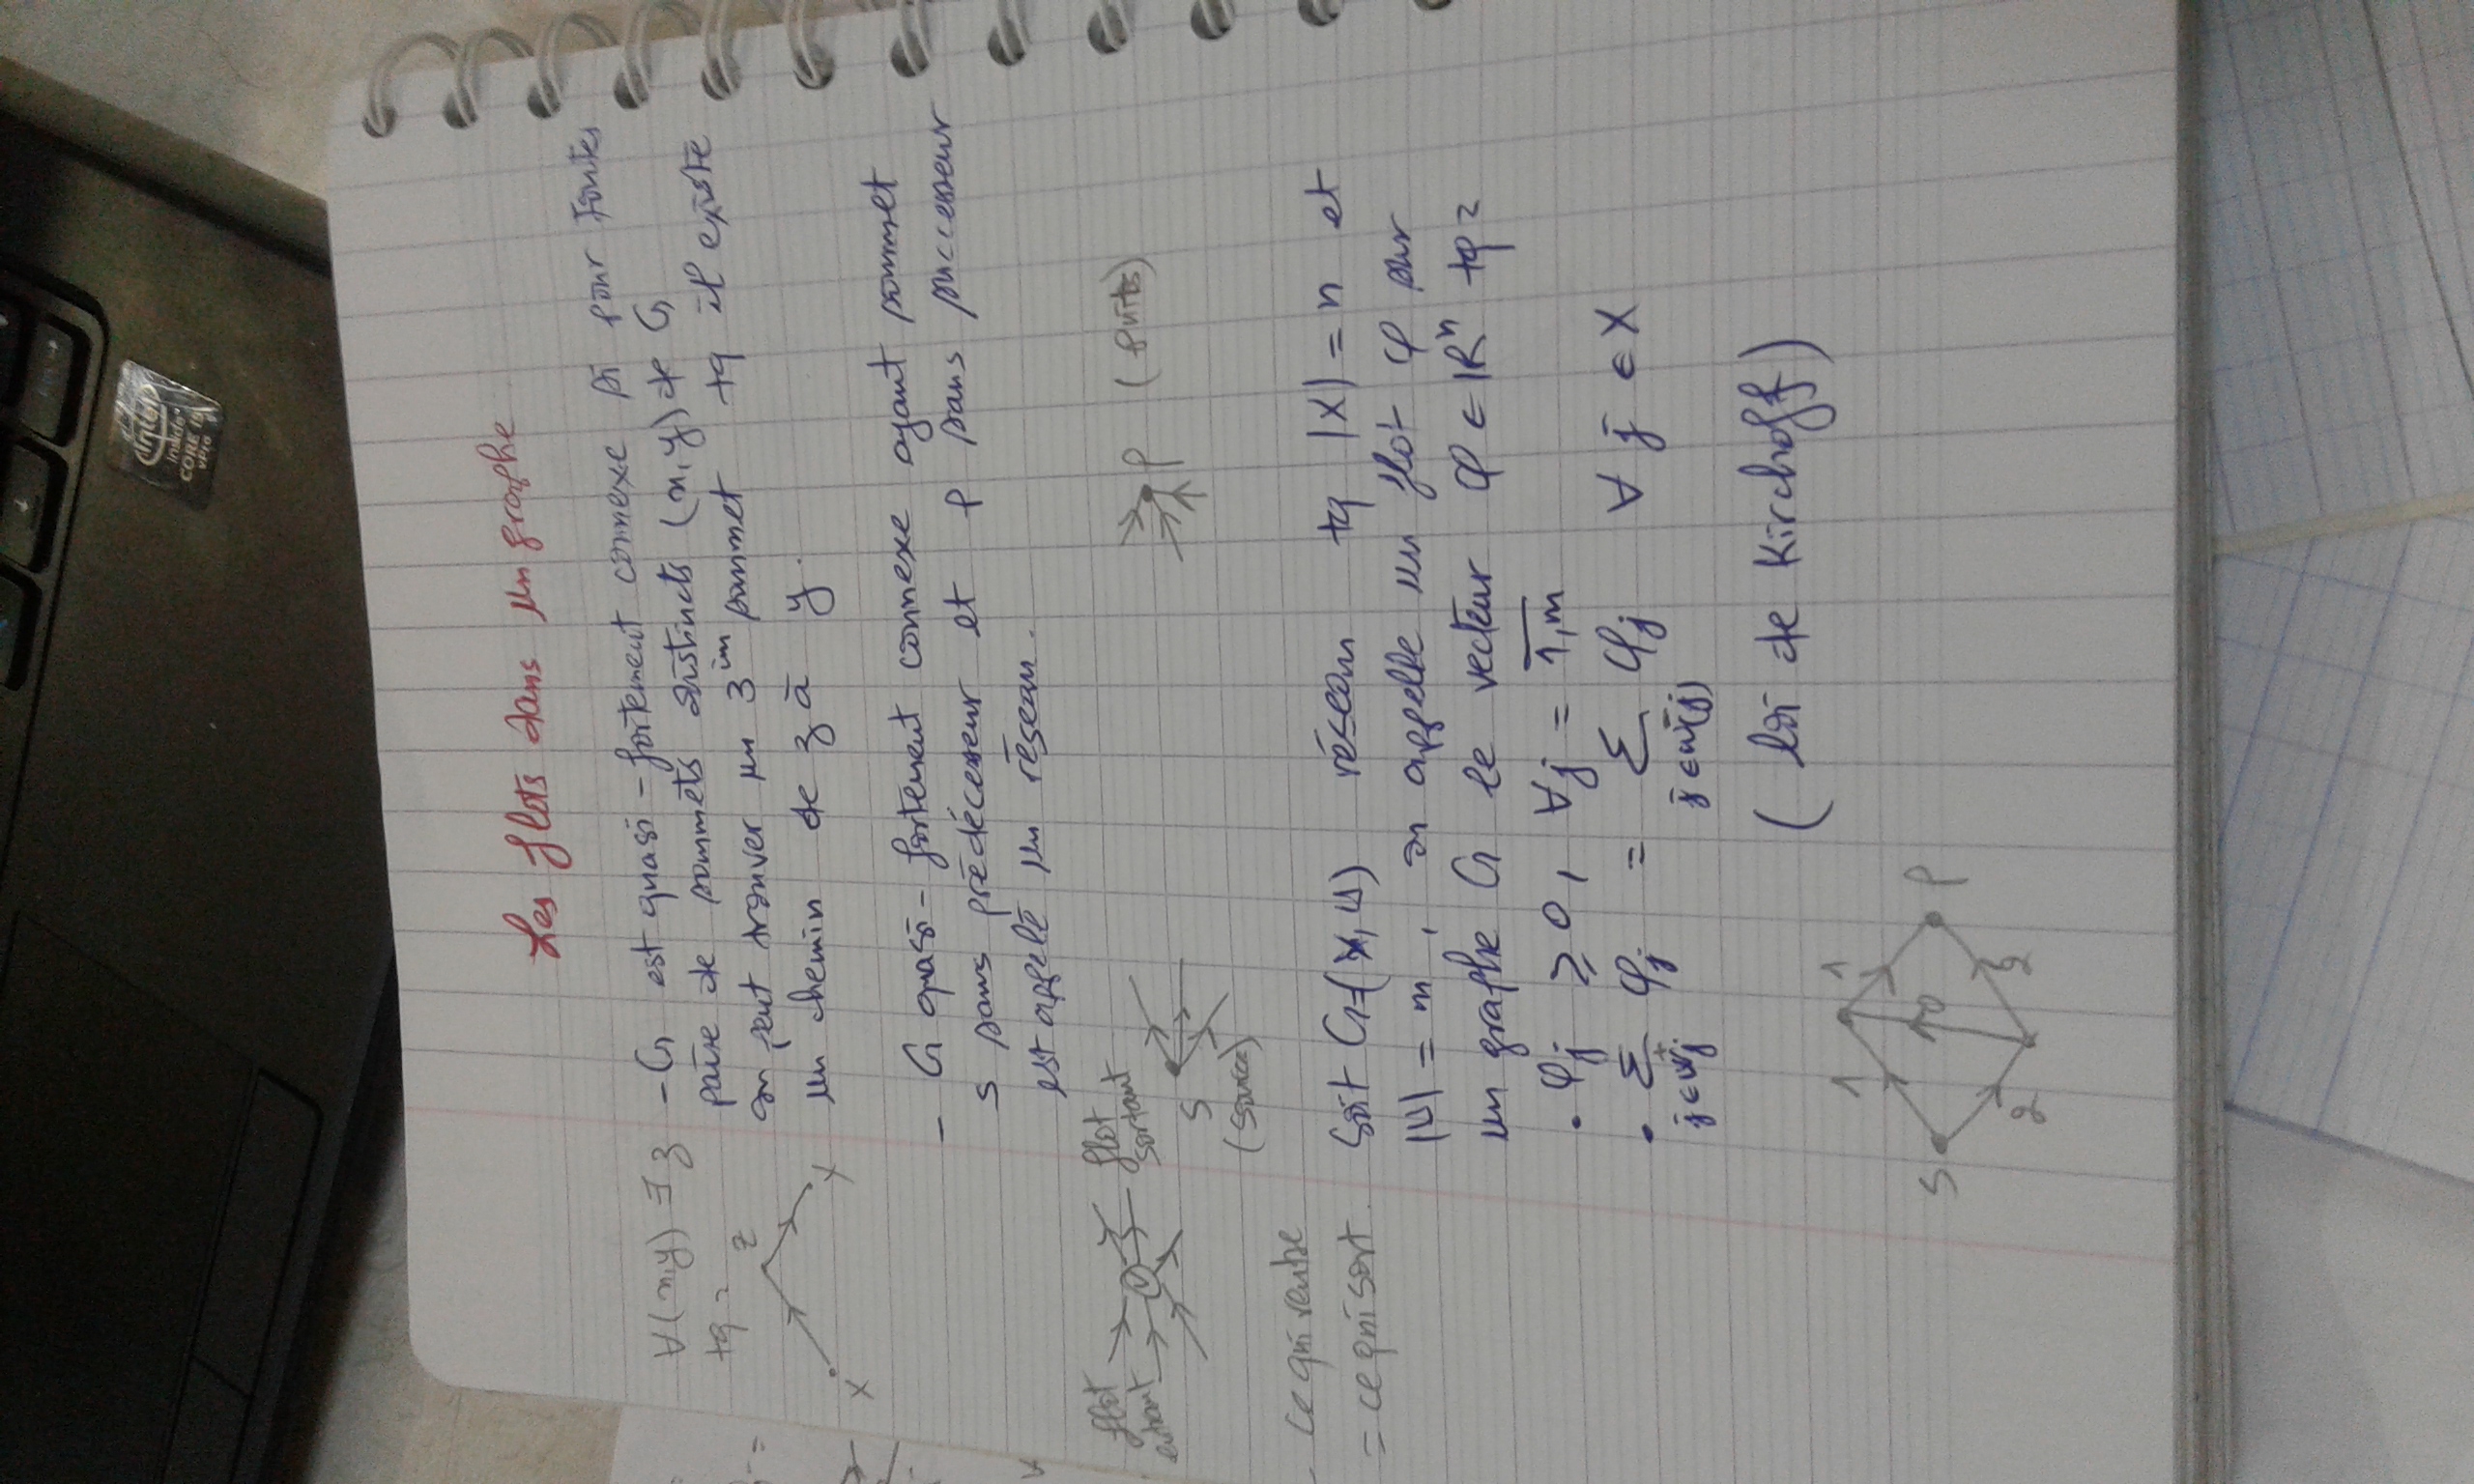 intel
inside
CORE i5
vPro
Les flots dans un graphe
∀(x,y) ∃ z
tq :
z
x
y
- G est quasi-fortement connexe si pour toutes
paire de sommets distincts (x,y) de G
on peut trouver un 3ièm sommet tq il existe
un chemin de z à y.
- G quasi-fortement connexe ayant sommet
s sans prédécesseur et p sans successeur
est appelé un réseau.
flot
entrant
flot
sortant
S
(source)
P (puits)
- ce qui rentre
= ce qui sort.
Soit G=(X,U) réseau tq |X| = n et
|U| = m, on appelle un flot φ sur
un graphe G le vecteur φ ∈ ℝⁿ tq :
. φj ≥ 0, ∀j = 1,m
. Σ φj = Σ φj ∀ j ∈ X
j∈w⁺j j∈w⁻(j)
(loi de Kirchoff)
1 1
S 0 P
2 2